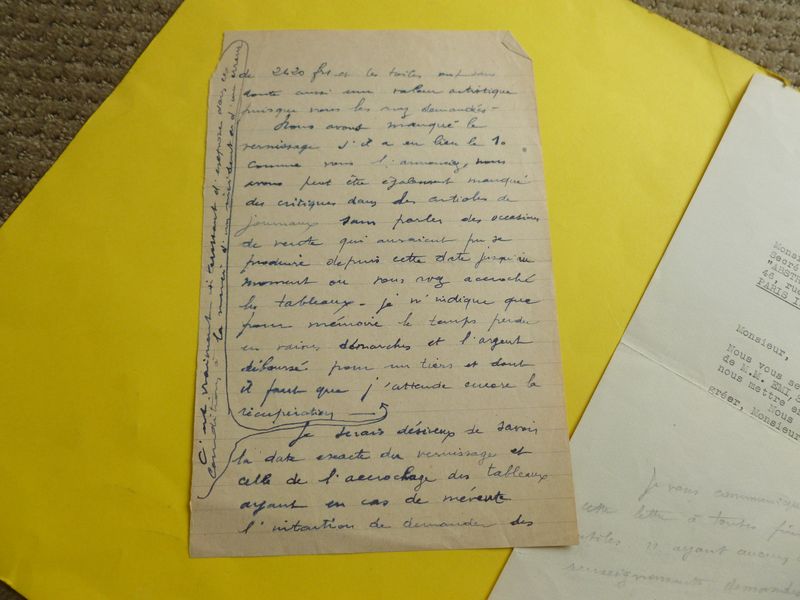 de 2420 frs et les toiles ont sans
doute aussi une valeur artistique
puisque vous les avez demandés –
Nous avons manqué le
vernissage s'il a eu lieu le 10
comme vous l'annonciez, nous
avons peut être également manqué
des critiques dans des articles de
journaux sans parler des occasions
de vente qui auraient pu se
produire depuis cette date jusqu'au
moment où vous avez accroché
les tableaux – je n'indique que
pour mémoire le temps perdu
en vaines démarches et l'argent
déboursé pour un tiers et dont
il faut que j'attende encore la
récupération —
Je serais désireux de savoir
la date exacte du vernissage et
celle de l'accrochage des tableaux
ayant en cas de mévente
l'intention de demander des
C'est vraiment intéressant d'exposer dans ces
conditions à la merci d'un incident ou d'une erreur
Monsi
Secré
"ABSTR
46, rue
PARIS I
Monsieur,
Nous vous se
de M.M. EMI, S
nous mettre e
Nous
gréer, Monsieur
Je vous communique
cette lettre à toutes fins
utiles n'ayant aucun
renseignements demandés